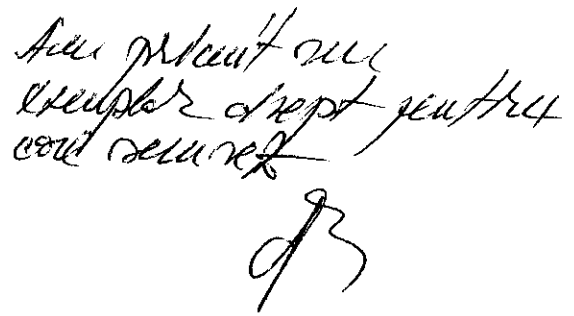 Am primit un
exemplar drept pentru
care semnez